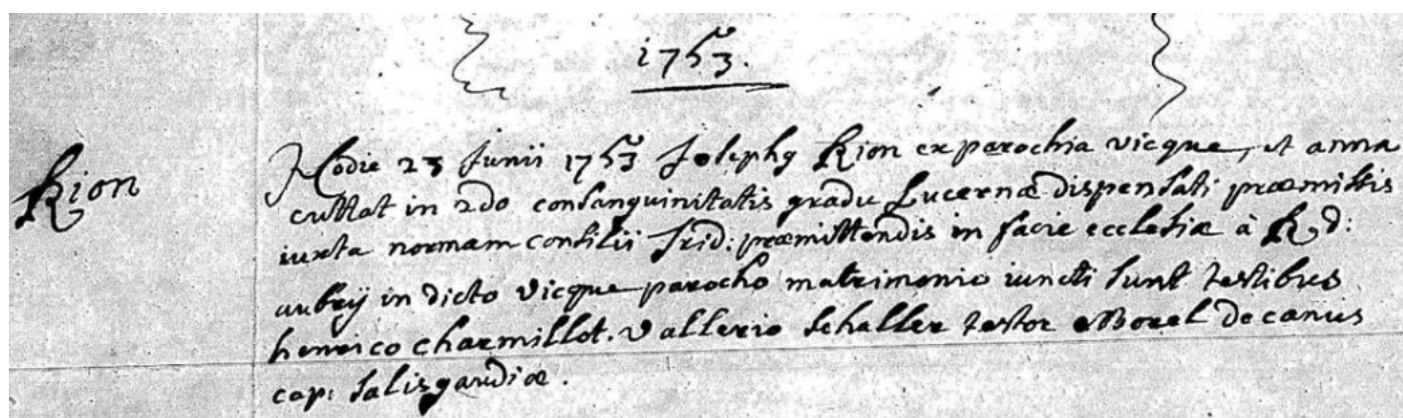 1753.
Rion
Hodie 23 Junii 1753 Josephg Rion ex parochia vicque, et anna
cuttat in 2do consanguinitatis gradu Lucernæ dispensati præmissis
iuxta normam consilii Trid: præmittendis in facie ecclesiæ à R d:
aubry in dicto Vicque parocho matrimonio iuncti sunt testibus
henrico charmillot. Vallerio schaller testor Borel Decanus
cap: Salisgaudiæ.